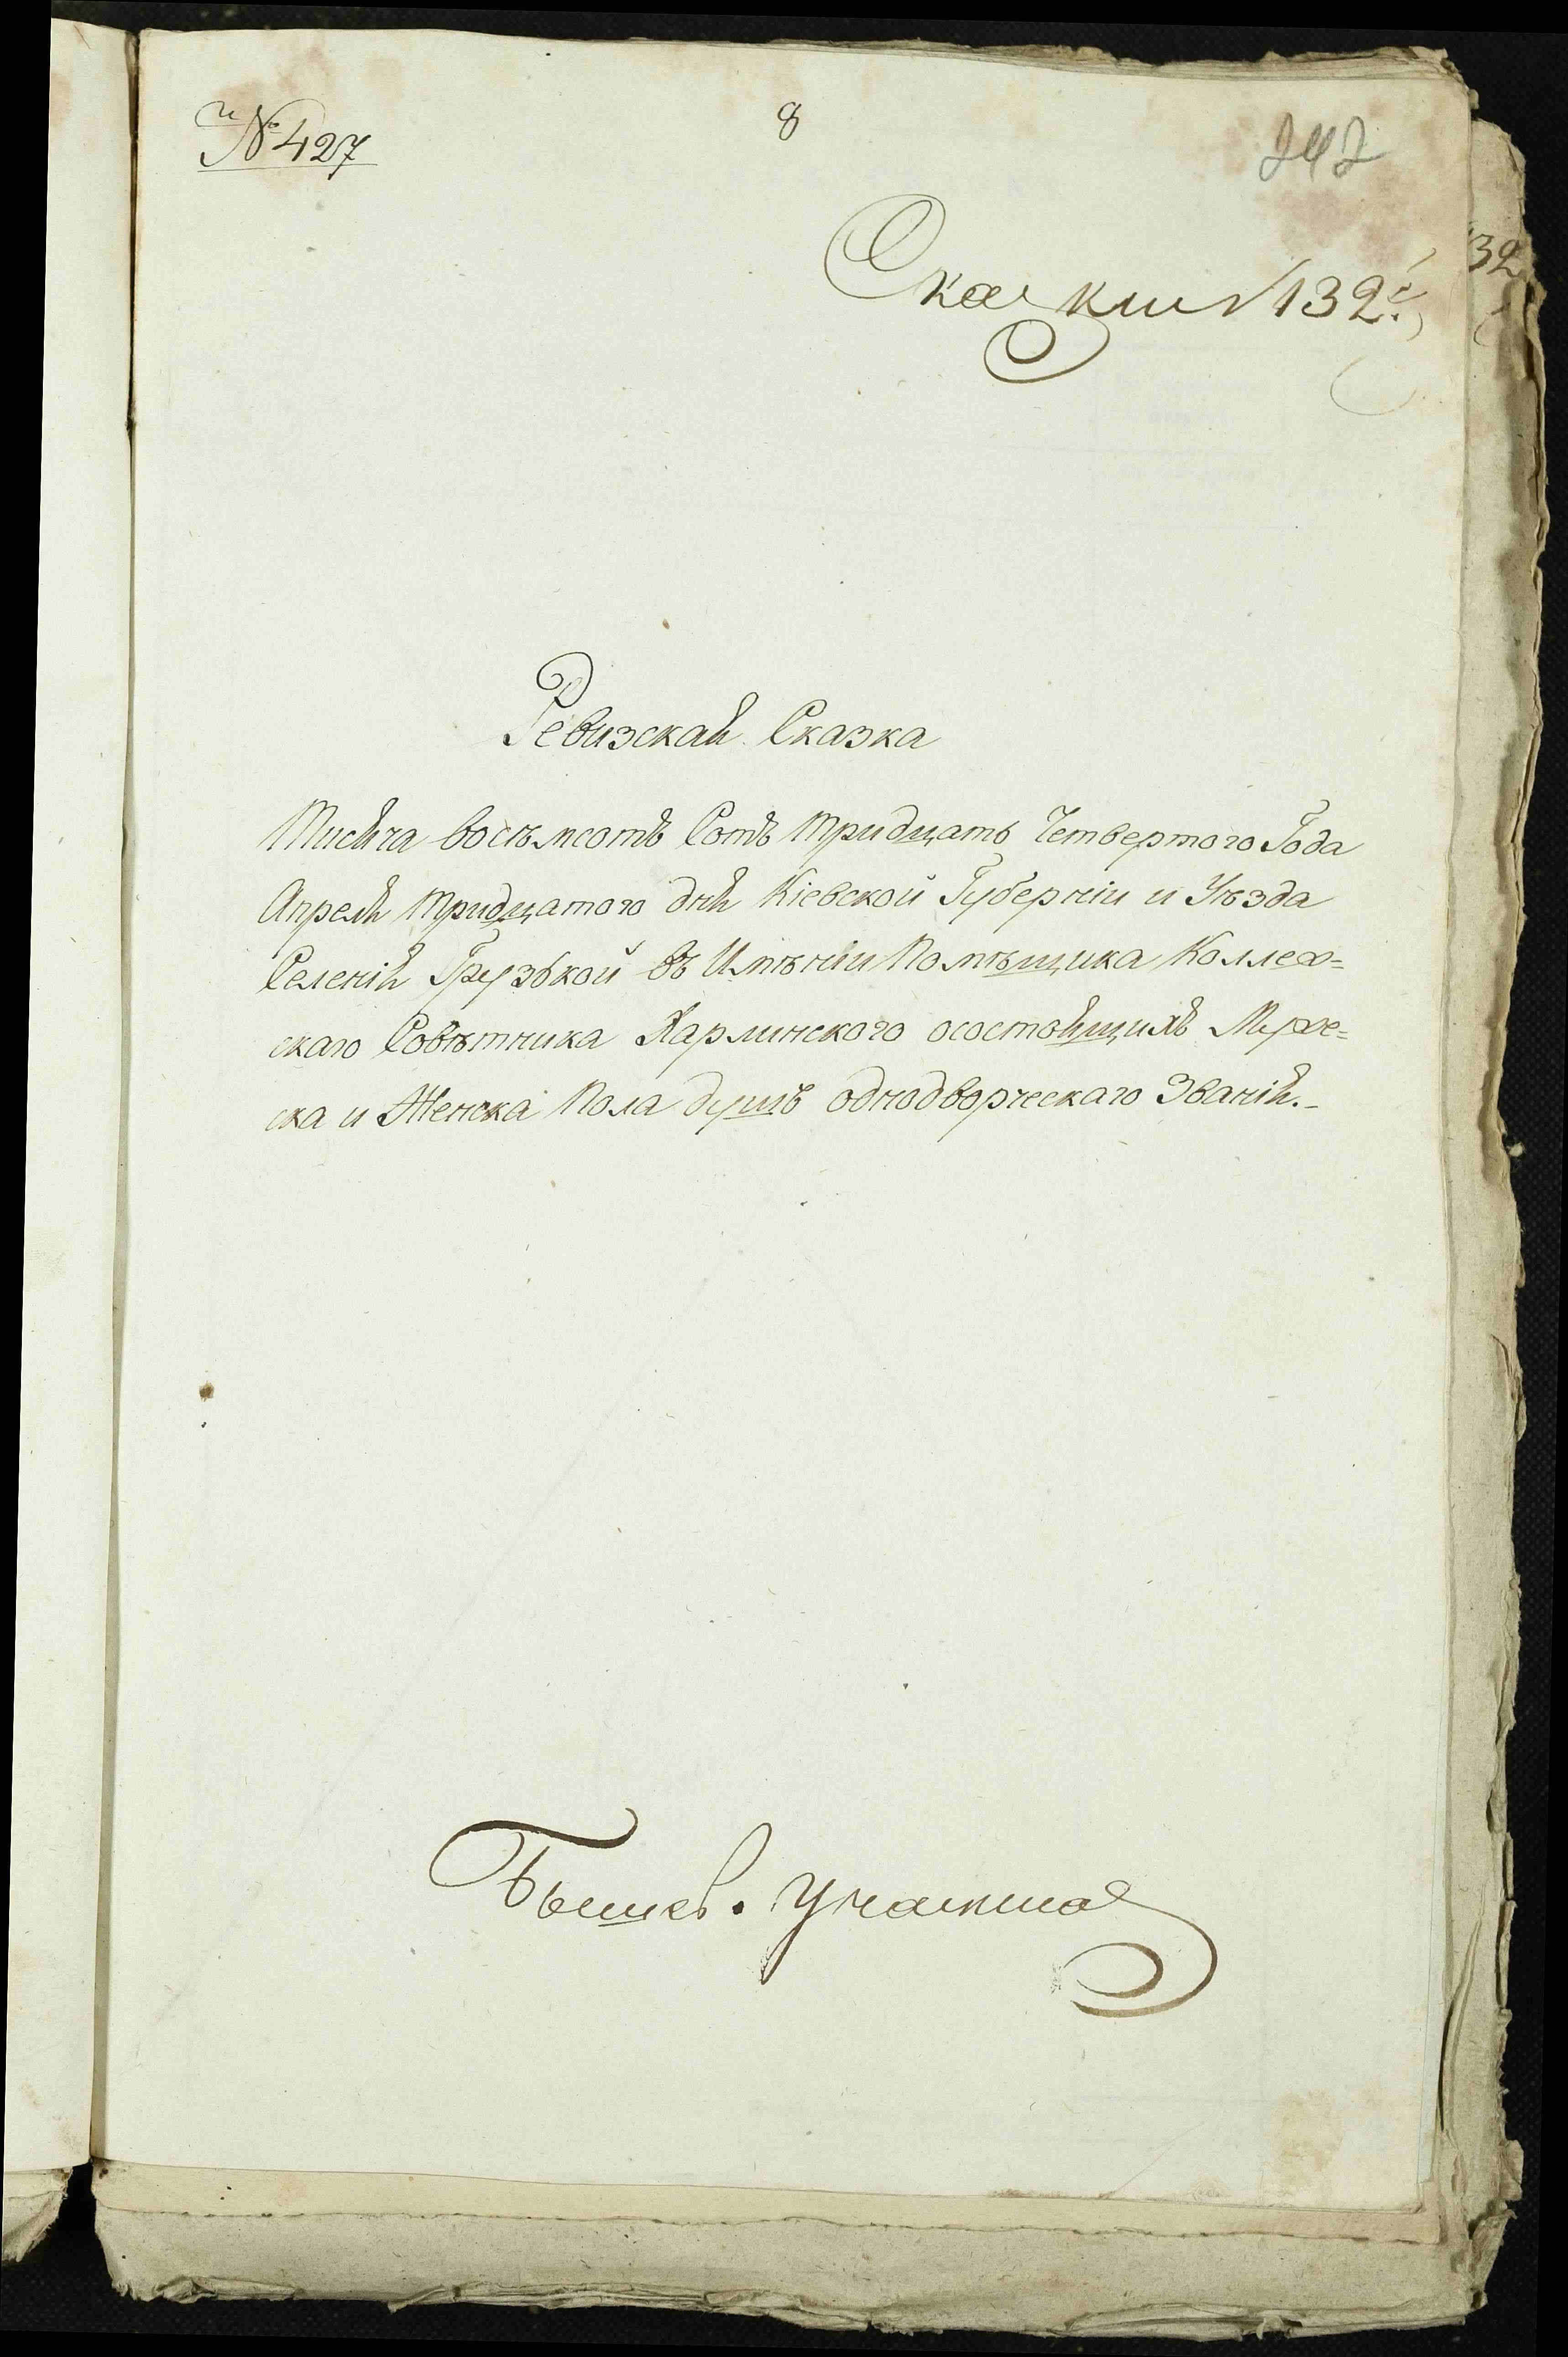 № 427
8
242
Сказки 132
32
Ревизская Сказка
Тисяча восѣмсотъ Сотъ тридцать Четвертого Года
Апреля тридцатого дня Кіевской Губерніи и Уѣзда
Селенія Грузької въ Имѣніи Помѣщика Коллеж=
скаго Совѣтника Харлинского осостоящихъ Муже=
ска и Женска Пола душъ однодворческаго Званія.
Бышев. участка